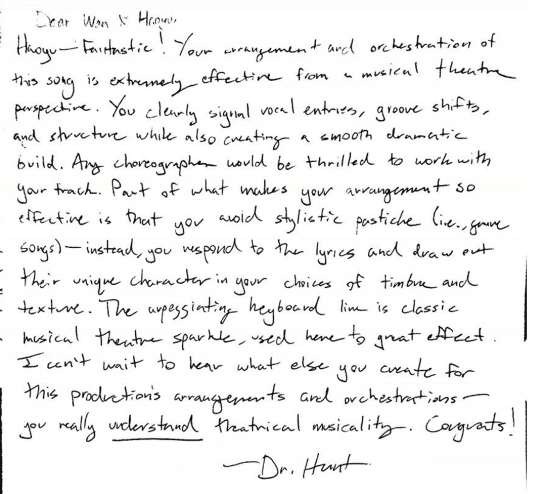 Dear Wan & Haoyu,
Haoyu — Fantastic! Your arrangement and orchestration of
this song is extremely effective from a musical theatre
perspective. You clearly signal vocal entries, groove shifts,
and structure while also creating a smooth dramatic
build. Any choreographer would be thrilled to work with
your track. Part of what makes your arrangement so
effective is that you avoid stylistic pastiche (i.e., genre
songs) — instead, you respond to the lyrics and draw out
their unique character in your choices of timbre and
texture. The arpeggiating keyboard line is classic
musical theatre sparkle, used here to great effect.
I can't wait to hear what else you create for
this production's arrangements and orchestrations —
you really understand theatrical musicality. Congrats!
— Dr. Hunt